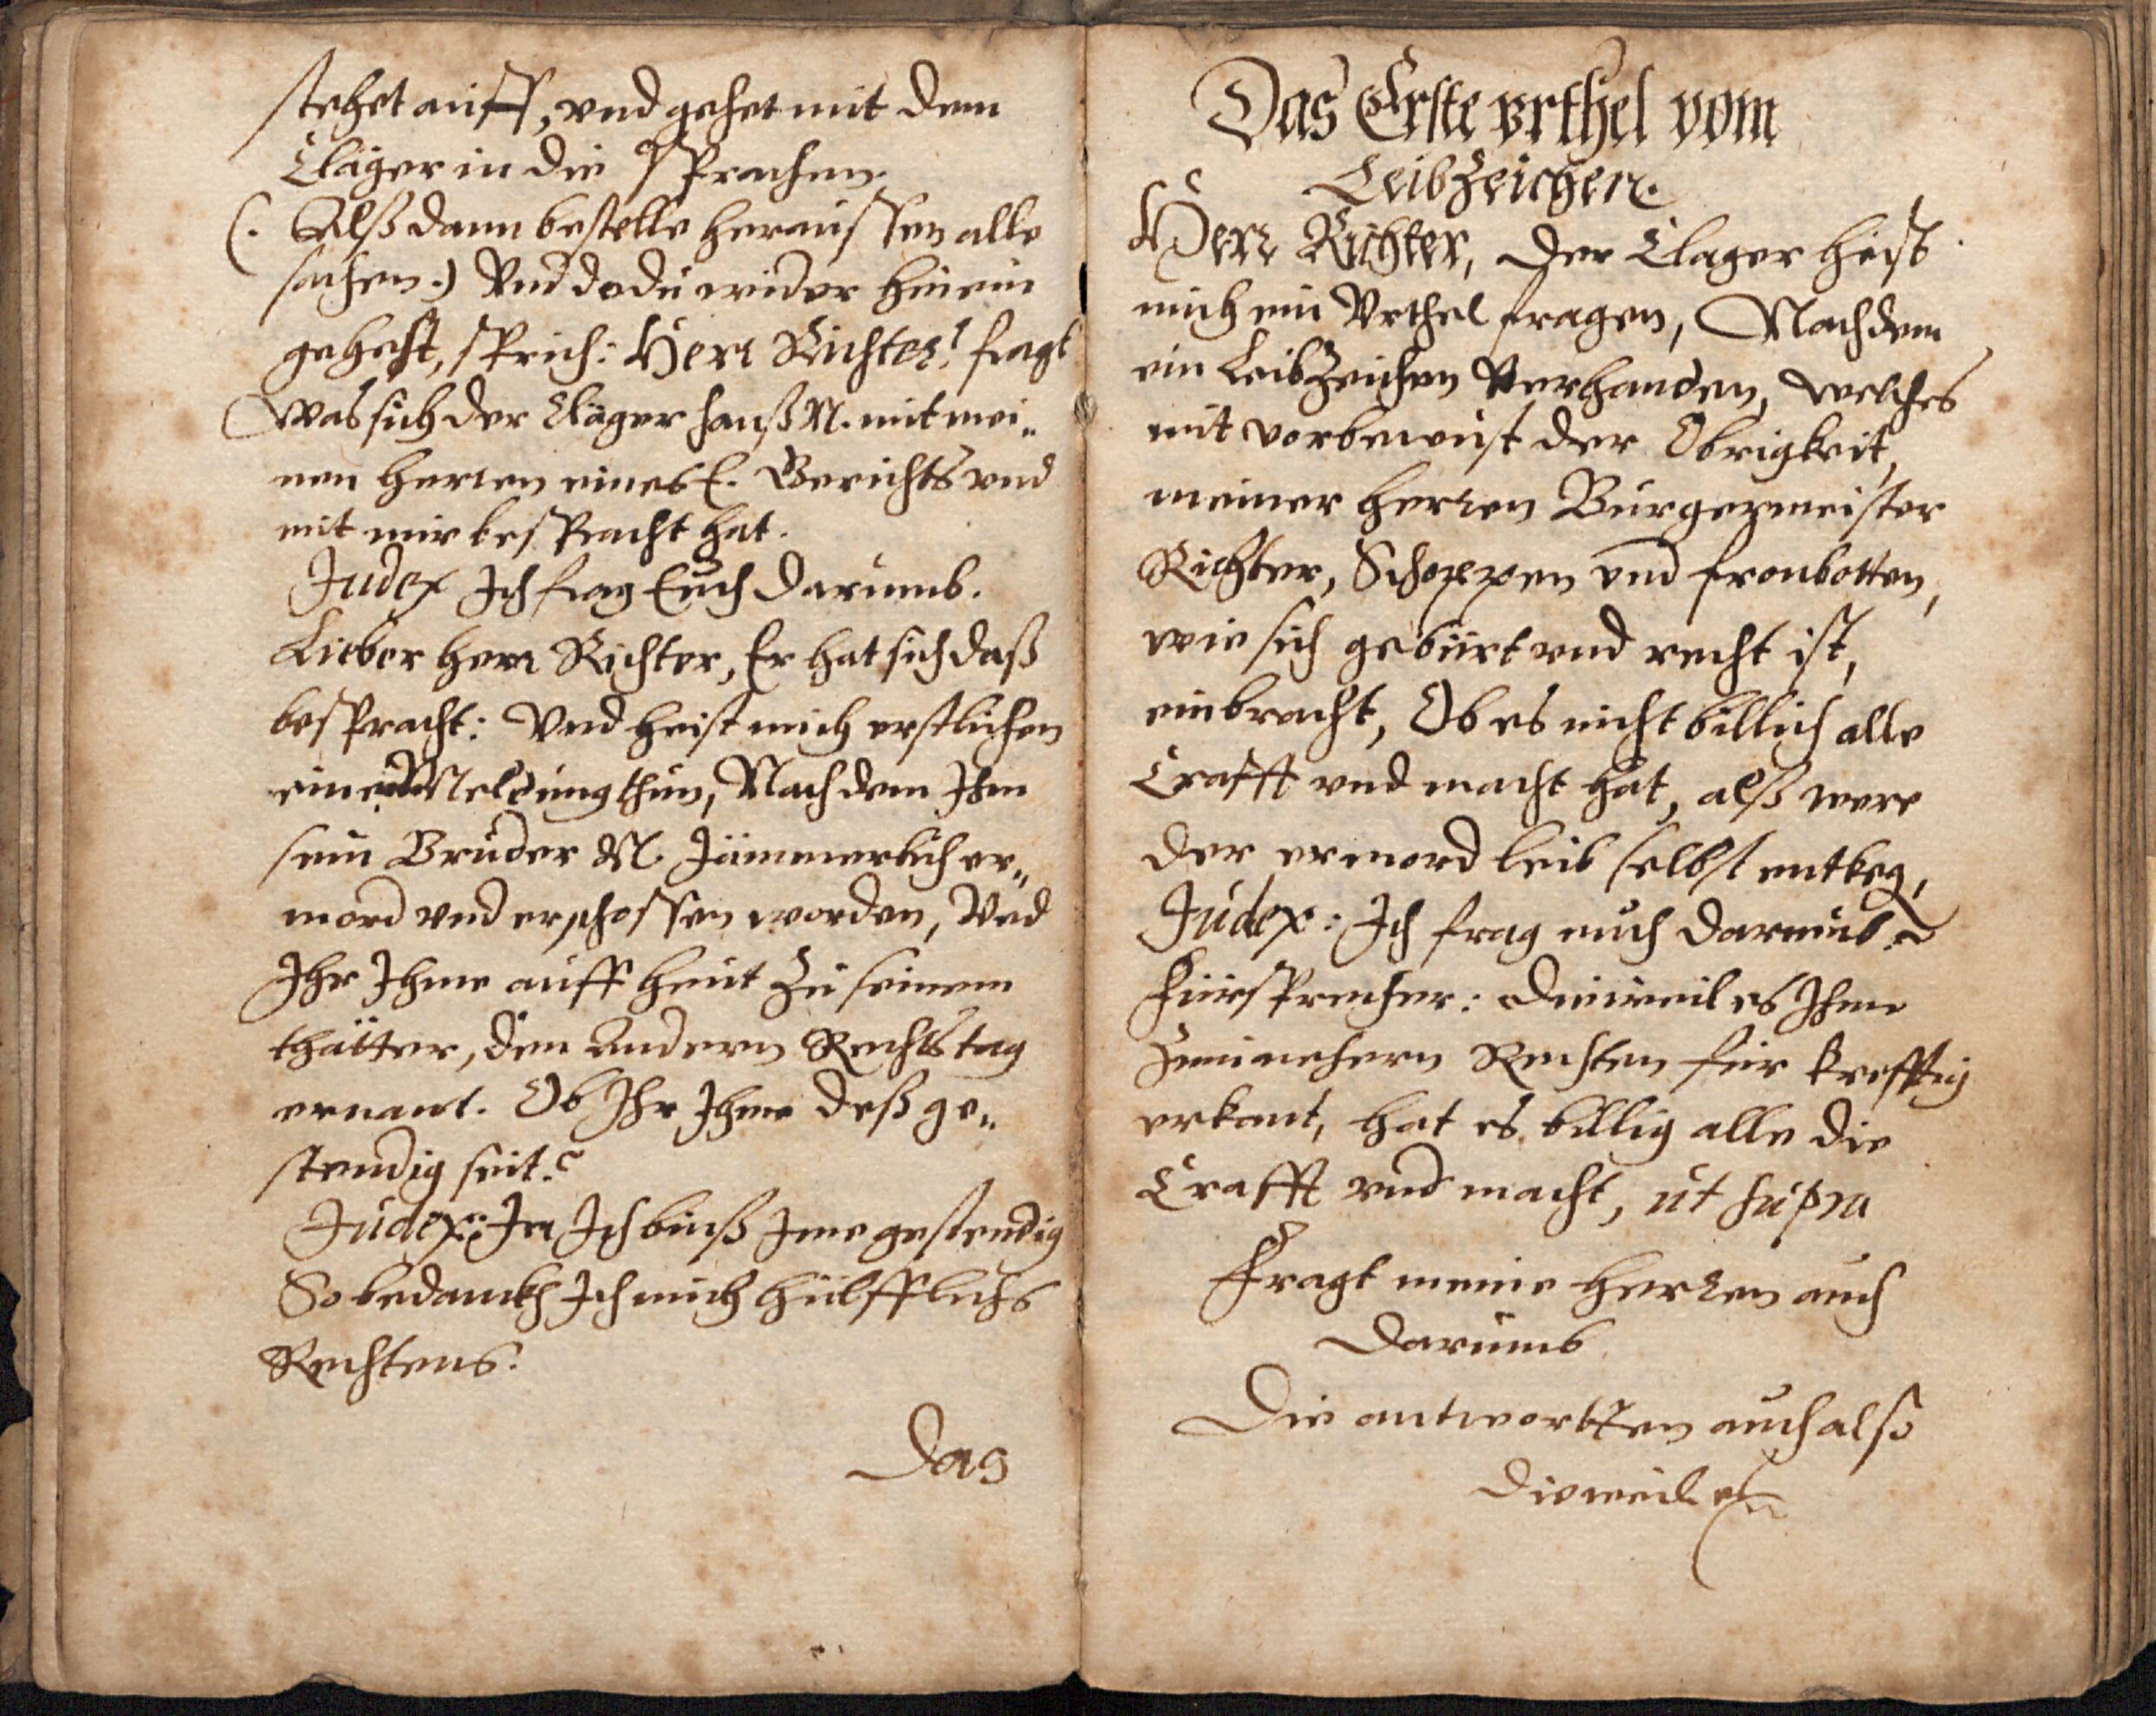 stehet auff, vnd gehet mit dem
Cläger in die Sprachen.
(. Alß dann bestelle heraussen alle
sachen.) Vnd do du wider hinein
gehest, sprich: Herr Richter! fragt
Was sich der Cläger Hanß N. mit mei„
nen Herren eines E. Gerichts vnd
mit mir bespracht hat.
Judex Ich frag Euch darumb.
Lieber Herr Richter, Er hat sich daß
bespracht: Vnd heist mich erstlichen
eine Meldung thun, Nachdem Ihm
sein Bruder N. Jämmerlich er„
mord vnd erschossen worden, Vnd
Ihr Ihme auff heut zu seinem
thätter, den Andern Rechtstag
ernant. Ob Ihr Ihme deß ge„
stendig seit?
Judex: Ja Ich binß Ime gestendig
So bedanckh Ich mich hülfflichs
Rechtens.
Das
Das Erste vrthel vom
Leibzeichen.
Herr Richter, der Clager heist
mich ein Vrthel fragen, Nachdem
ein Leibzeichen Verhanden, welches
mit vorbewust der Obrigkeit,
meiner Herren Burgermeister
Richter, Schoppen vnd fronbotten,
wie sich gebürt vnd recht ist,
einbracht, Ob es nicht billich alle
Crafft vnd macht hat, alß were
der ermord leib selbst entkeg,
Judex: Ich frag euch darumb
Fürsprecher: dieweil es Ihme
Zuuinehern Rechten für krefftig
erkant, hat es billig alle die
Crafft vnd macht, ut supra
Fragt meine Herren auch
darumb
Die antwortten auch alß
dieweil es